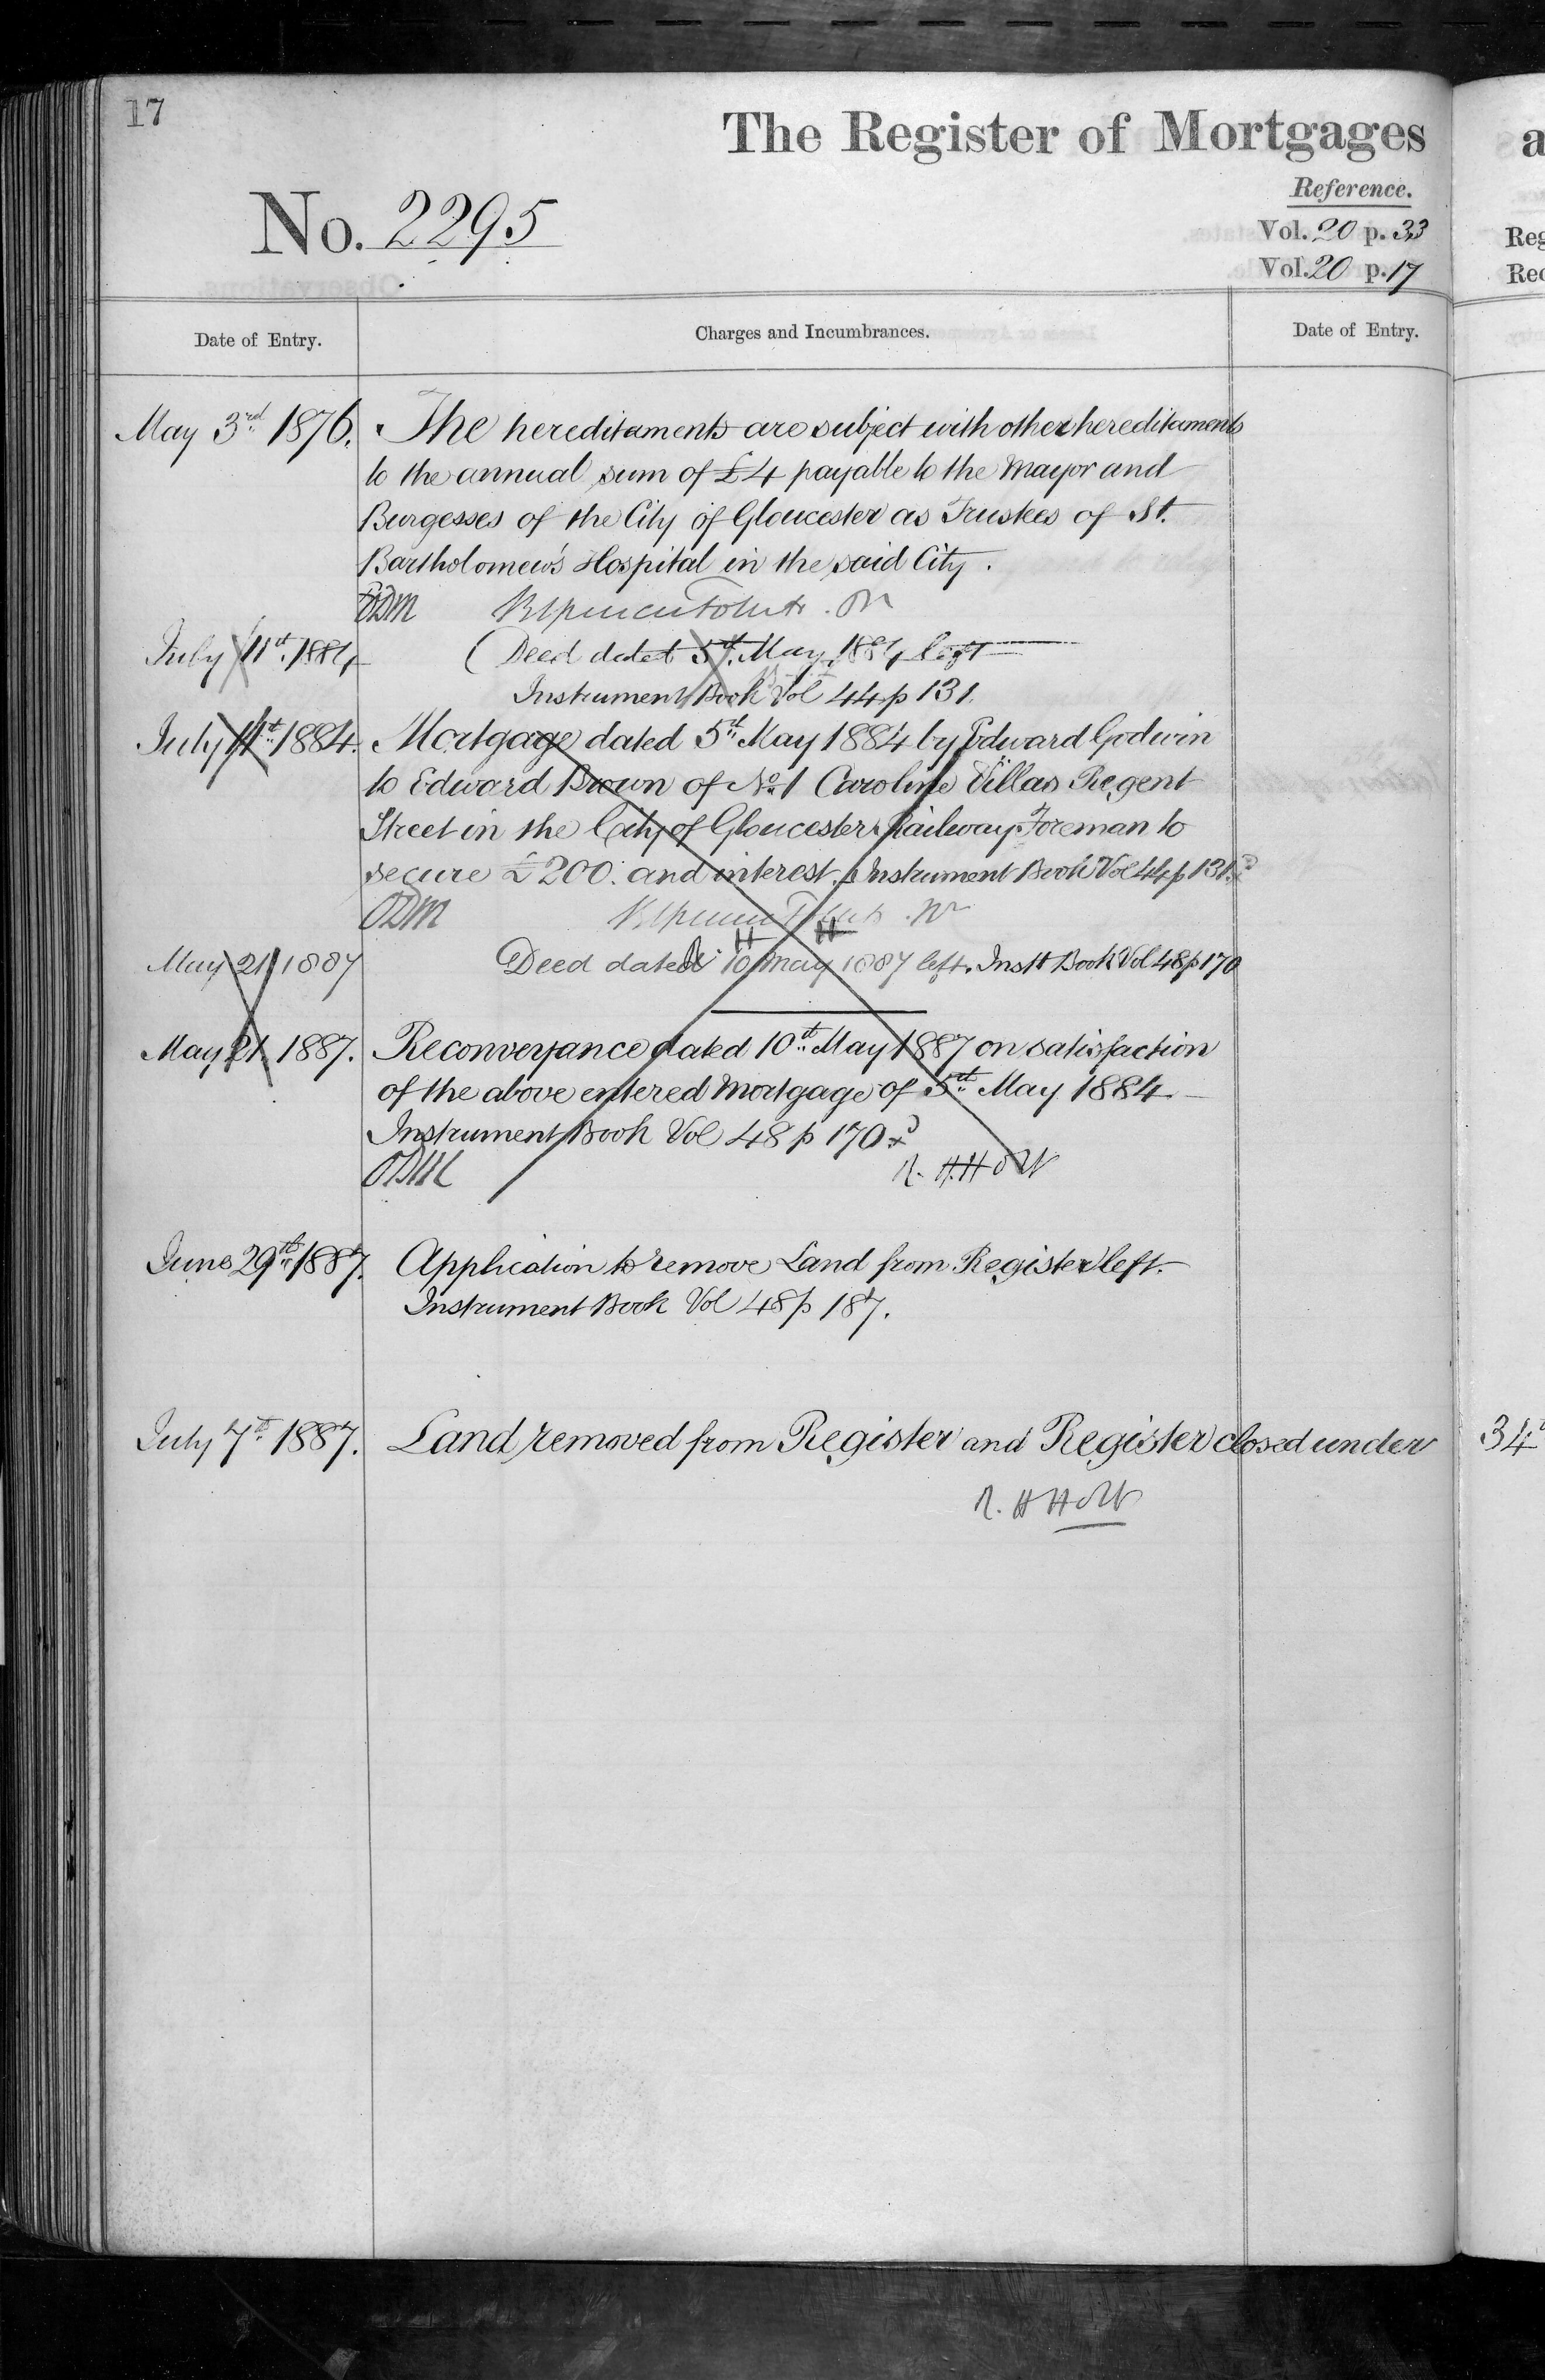 17
The Register of Mortgages
Reference.
No. 2295
Vol. 20 p. 33
Vol. 20 p. 17
Date of Entry.
Charges and Incumbrances.
Date of Entry.
May 3rd 1876. The hereditaments are subject with other hereditaments
to the annual sum of £4 payable to the Mayor and
Burgesses of the City of Gloucester as Trustees of St.
Bartholomew's Hospital in the said City.
ODM
July 11th 1884 (Deed dated 5th May 1884 left
Instrument Book Vol 44 p 131
July 11th 1884. Mortgage dated 5th May 1884 by Edward Godwin
to Edward Brown of No 1 Caroline Villas Regent
Street in the City of Gloucester Railway Foreman to
secure £200. and interest. Instrument Book Vol 44 p 131.
ODM
May 21 1887 Deed dated 10 May 1887 left. Inst Book Vol 48 p 170
May 21 1887. Reconveyance dated 10th May 1887 on satisfaction
of the above entered Mortgage of 5th May 1884
Instrument Book Vol 48 p 170
ODM R. H. Holt
June 29th 1887. Application to remove Land from Register left.
Instrument Book Vol 48 p 187.
July 7th 1887. Land removed from Register and Register closed under 34
R. H Holt
a
Reg
Rec